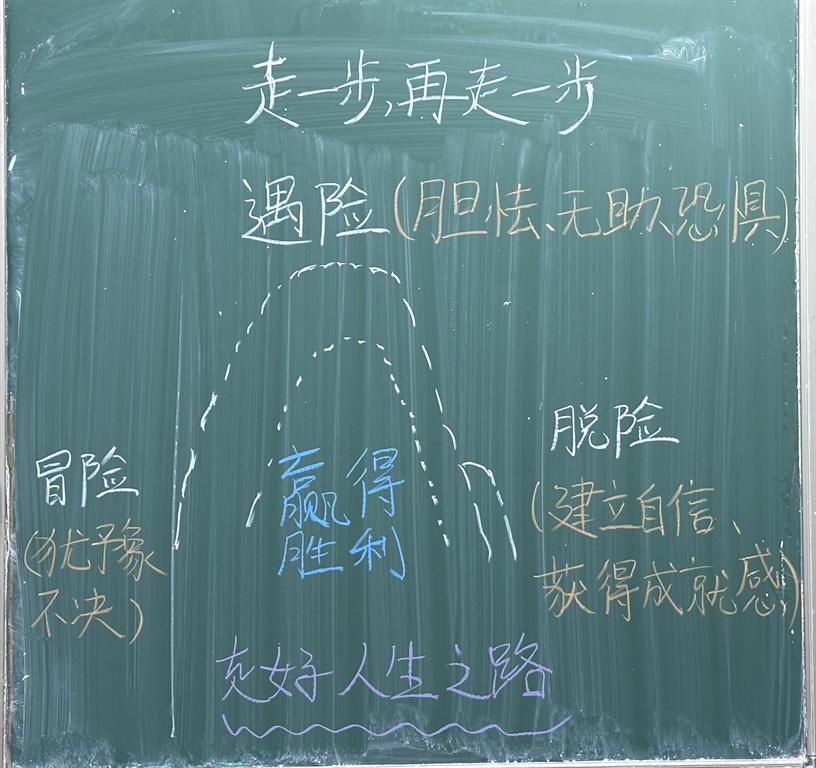 走一步,再走一步
遇险(胆怯、无助、恐惧)
脱险
冒险
赢得
胜利
(建立自信、
获得成就感)
(犹予象
不决)
好人生之路